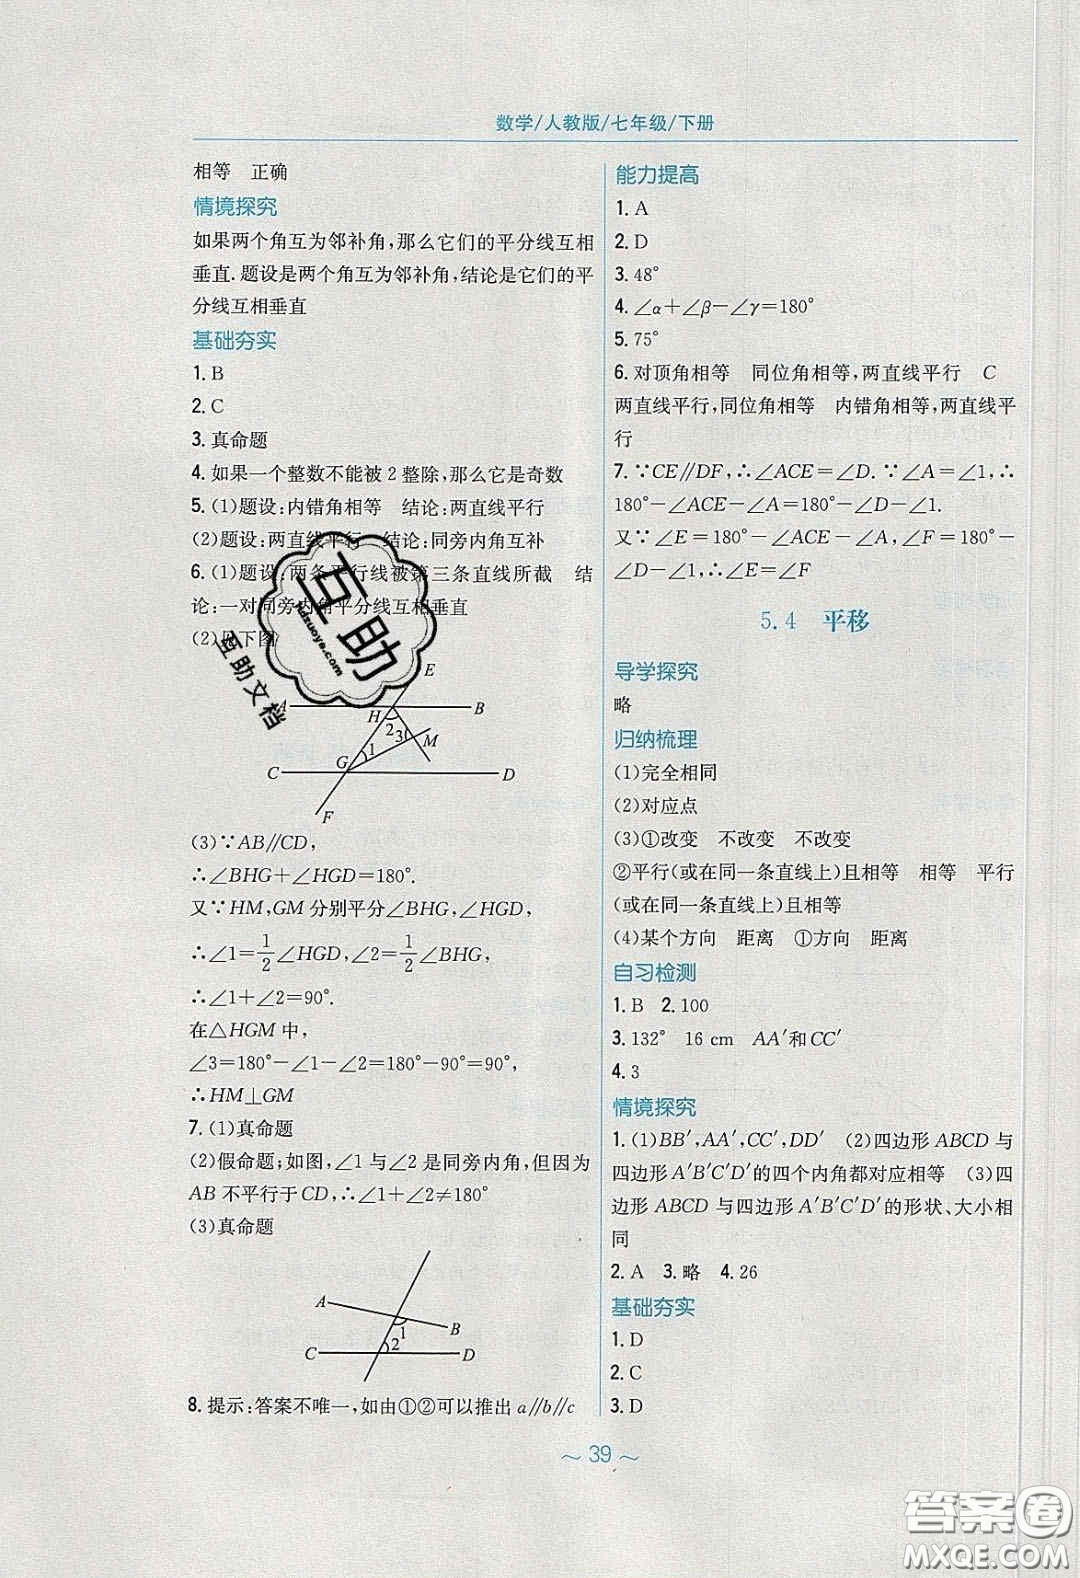 数学/人教版/七年级/下册
相等　正确
情境探究
如果两个角互为邻补角,那么它们的平分线互相
垂直.题设是两个角互为邻补角,结论是它们的平
分线互相垂直
基础夯实
1. B
2. C
3. 真命题
4. 如果一个整数不能被 2 整除,那么它是奇数
5. (1)题设:内错角相等　结论:两直线平行
(2)题设:两直线平行　结论:同旁内角互补
6. (1)题设:两条平行线被第三条直线所截　结
论:一对同旁内角平分线互相垂直
(2)如下图
E
A H B
2 3
1 M
C G D
F
(3)∵AB∥CD,
∴∠BHG+∠HGD=180°.
又∵HM,GM 分别平分∠BHG,∠HGD,
∴∠1=1/2∠HGD,∠2=1/2∠BHG,
∴∠1+∠2=90°.
在△HGM 中,
∠3=180°-∠1-∠2=180°-90°=90°,
∴HM⊥GM
7. (1)真命题
(2)假命题;如图,∠1 与∠2 是同旁内角,但因为
AB 不平行于 CD,∴∠1+∠2≠180°
(3)真命题
A
1 B
C 2 D
8. 提示:答案不唯一,如由①②可以推出 a∥b∥c
能力提高
1. A
2. D
3. 48°
4. ∠α+∠β-∠γ=180°
5. 75°
6. 对顶角相等　同位角相等,两直线平行　C
两直线平行,同位角相等　内错角相等,两直线平
行
7. ∵CE∥DF,∴∠ACE=∠D.∵∠A=∠1,∴
180°-∠ACE-∠A=180°-∠D-∠1.
又∵∠E=180°-∠ACE-∠A,∠F=180°-
∠D-∠1,∴∠E=∠F
5.4　平移
导学探究
略
归纳梳理
(1)完全相同
(2)对应点
(3)①改变　不改变　不改变
②平行(或在同一条直线上)且相等　相等　平行
(或在同一条直线上)且相等
(4)某个方向　距离　①方向　距离
自习检测
1. B　2. 100
3. 132°　16 cm　AA′和CC′
4. 3
情境探究
1. (1)BB′,AA′,CC′,DD′　(2)四边形 ABCD 与
四边形 A′B′C′D′的四个内角都对应相等　(3)四
边形 ABCD 与四边形 A′B′C′D′的形状、大小相
同
2. A　3. 略　4. 26
基础夯实
1. D
2. C
3. D
～ 39 ～
互助
hdzuoye.com
互助文档
答案圈
MXQE.COM